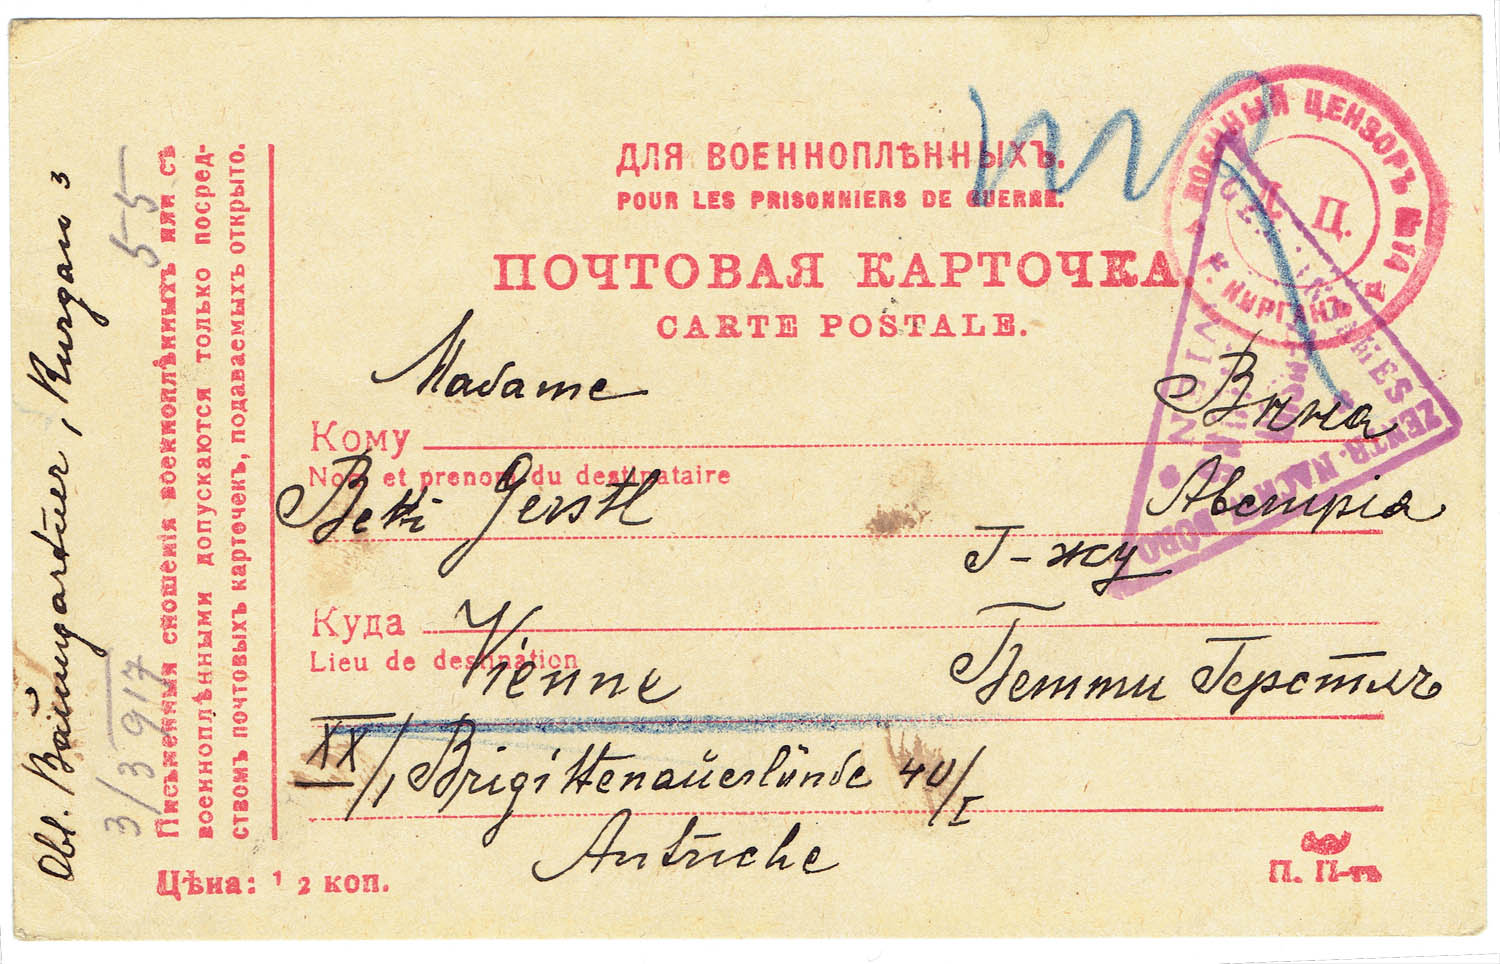 ДЛЯ ВОЕННОПЛѢННЫХЪ.
POUR LES PRISONNIERS DE GUERRE.
ПОЧТОВАЯ КАРТОЧКА.
CARTE POSTALE.
ВОЕННЫЙ ЦЕНЗОРЪ №14
Г. КУРГАНЪ
Ц.
ZENTR. NACHW. BÜRO
WIEN
Madame
Кому
Nom et prenom du destinataire
Betti Gerstl
Куда
Lieu de destination
Vienne
XX/1 Brigittenauerlände 40/I
Autriche
Вѣна
Австрія
Г-жу
Бетти Герстль
Цѣна: 1/2 коп.
П. П-тъ
Письменныя сношенія военноплѣнныхъ или съ
военноплѣнными допускаются только посред-
ствомъ почтовыхъ карточекъ, подаваемыхъ открыто.
3/3 917
55
Obl. Baumgartner, Kurgan 3